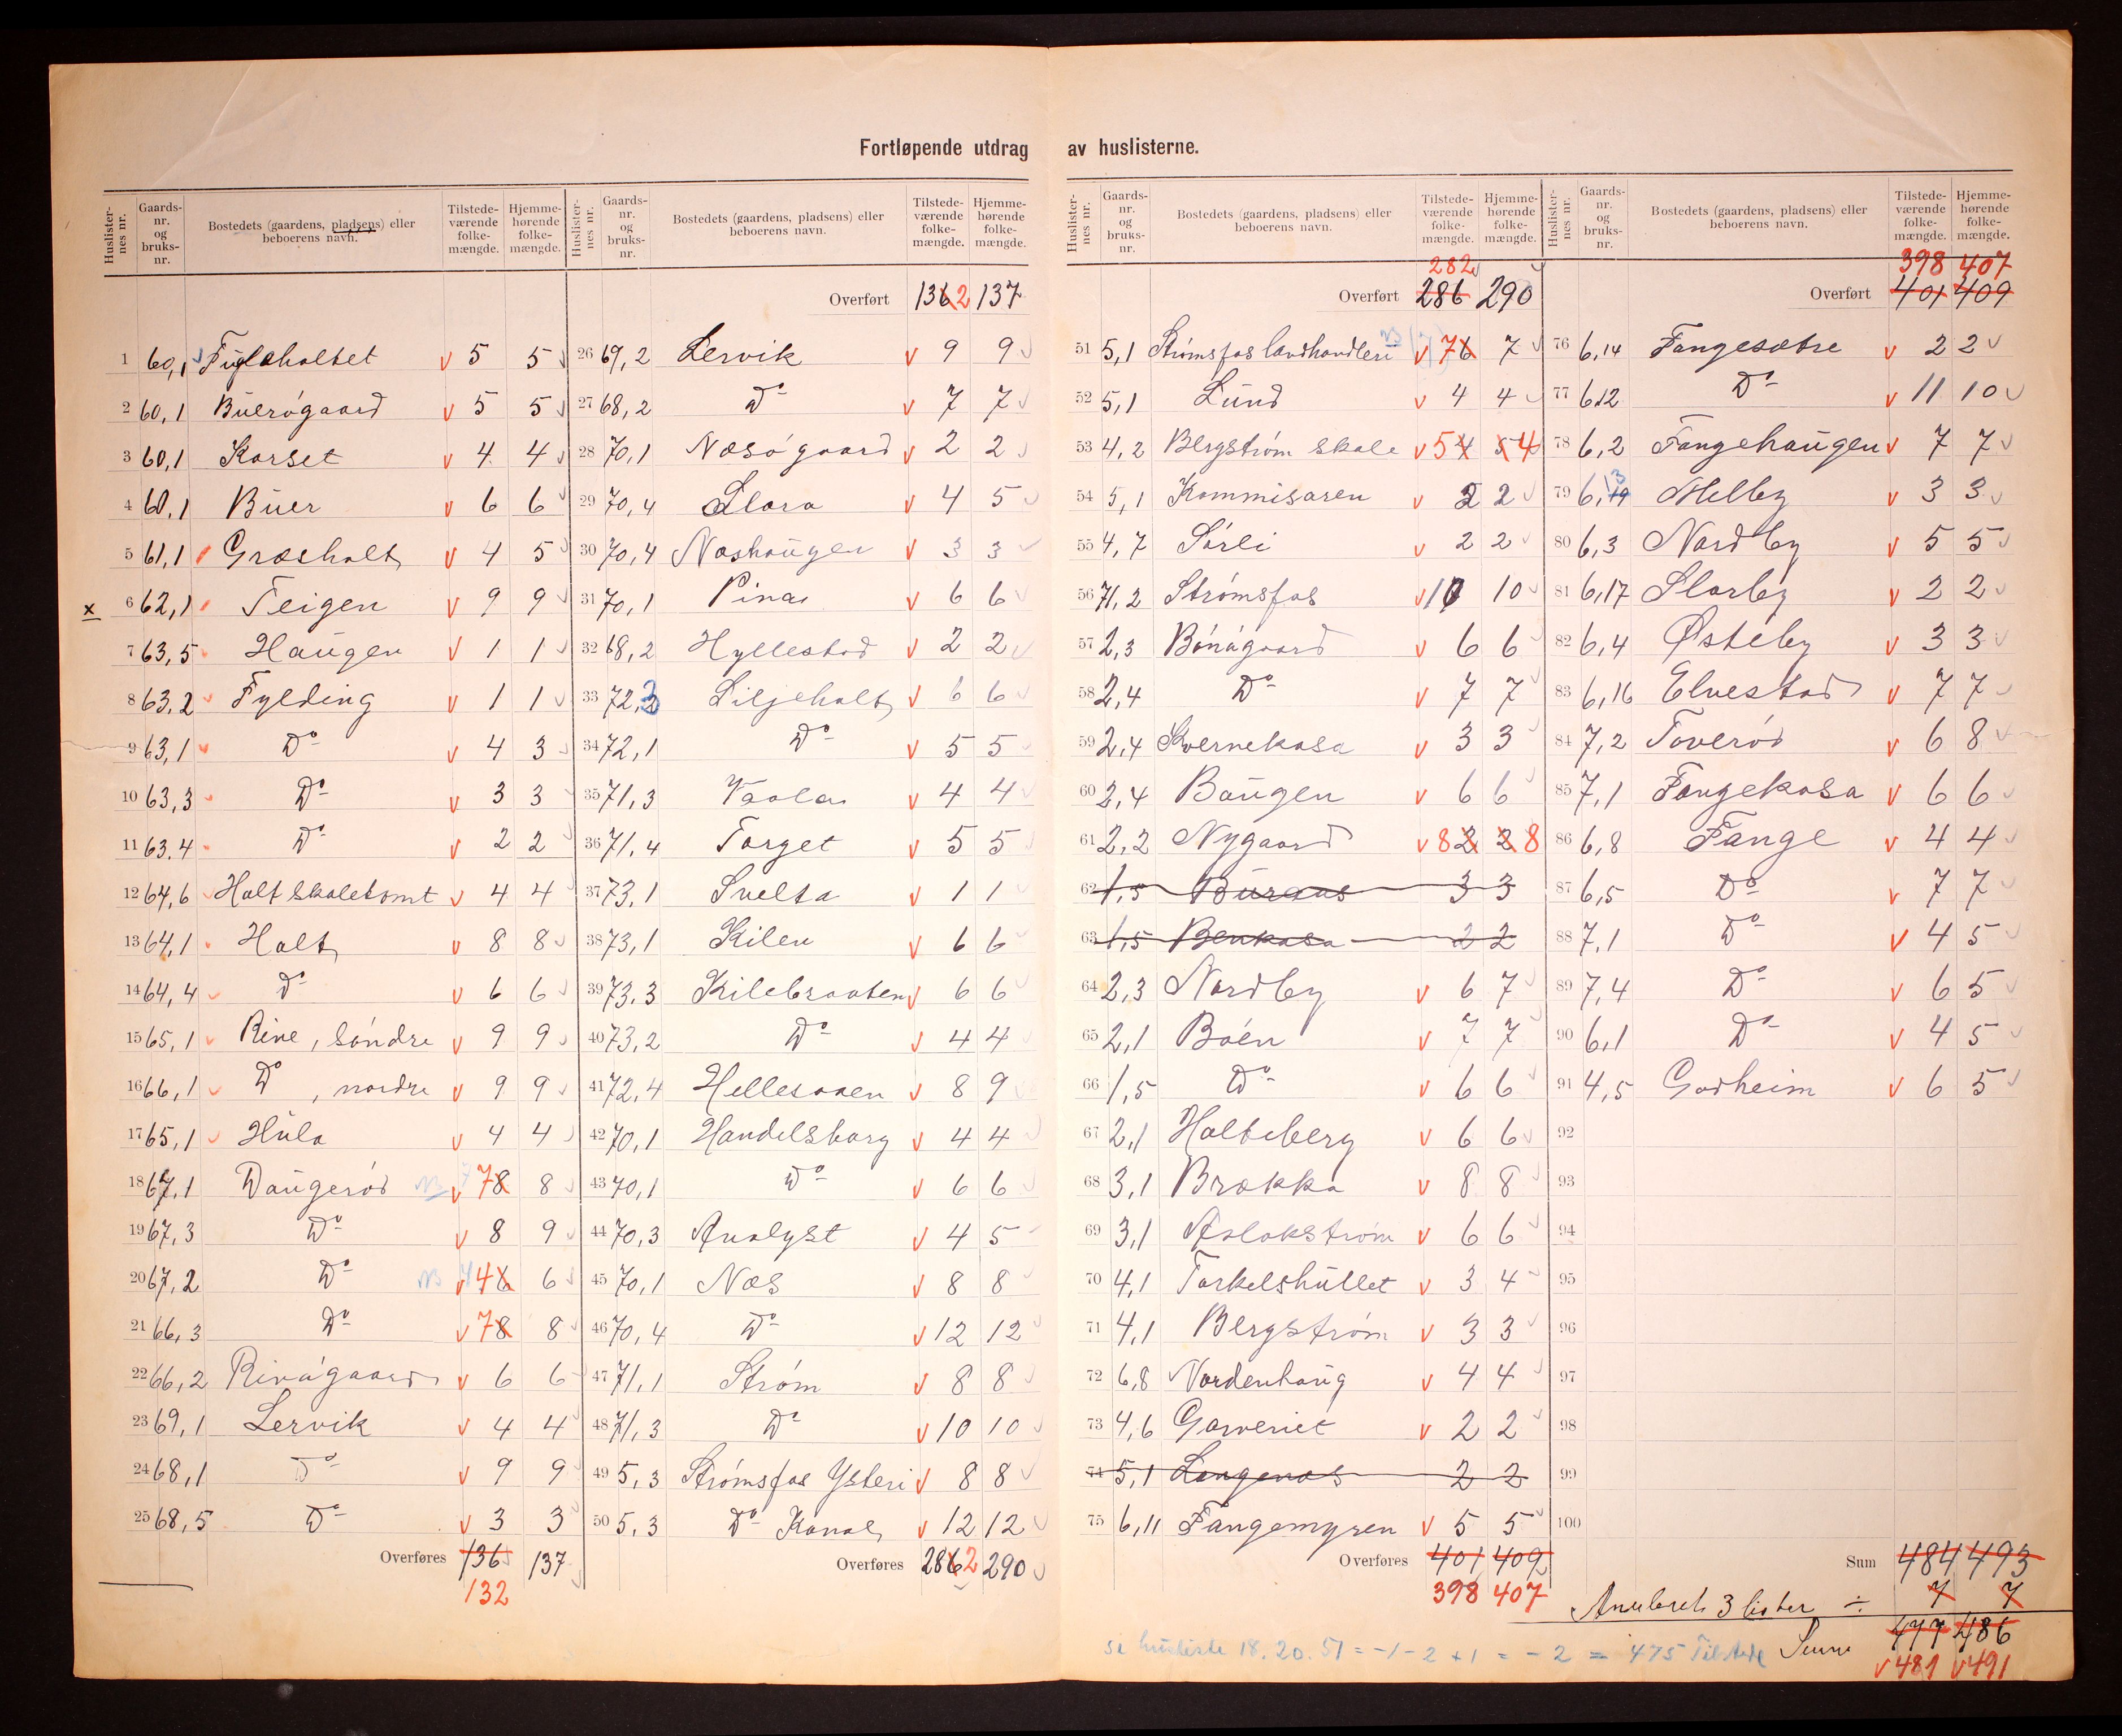 Fortløpende utdrag av huslisterne.
Huslisternes nr. Gaards-nr. og bruks-nr. Bostedets (gaardens, pladsens) eller beboerens navn. Tilstedeværende folkemængde. Hjemmehørende folkemængde.
1 60,1 Fugleholtet 5 5
2 60,1 Buerøgaard 5 5
3 60,1 Korset 4 4
4 60,1 Buer 6 6
5 61,1 Græsholt 4 5
6 62,1 Teigen 9 9
7 63,5 Haugen 1 1
8 63,2 Fylding 1 1
9 63,1 Do 4 3
10 63,3 Do 3 3
11 63,4 Do 2 2
12 64,6 Holt skoletomt 4 4
13 64,1 Holt 8 8
14 64,4 Do 6 6
15 65,1 Rive, søndre 9 9
16 66,1 Do, nordre 9 9
17 65,1 Hula 4 4
18 67,1 Daugerød NB 7 78 8
19 67,3 Do 8 9
20 67,2 Do NB 4 46 6
21 66,3 Do 78 8
22 66,2 Rivøgaard 6 6
23 69,1 Lervik 4 4
24 68,1 Do 9 9
25 68,5 Do 3 3
Overføres 136 137
132
Huslisternes nr. Gaards-nr. og bruks-nr. Bostedets (gaardens, pladsens) eller beboerens navn. Tilstedeværende folkemængde. Hjemmehørende folkemængde.
Overført 136 2 137
26 69,2 Lervik 9 9
27 68,2 Do 7 7
28 70,1 Næsøgaard 2 2
29 70,4 Slora 4 5
30 70,4 Næshaugen 3 3
31 70,1 Pina 6 6
32 68,2 Hyllestad 2 2
33 72,3 Liljeholt 6 6
34 72,1 Do 5 5
35 71,3 Vaolen 4 4
36 71,4 Torget 5 5
37 73,1 Svelta 1 1
38 73,1 Kilen 6 6
39 73,3 Kilebraaten 6 6
40 73,2 Do 4 4
41 72,4 Hellesaaen 8 9
42 70,1 Handelsborg 4 4
43 70,1 Do 6 6
44 70,3 Analyst 4 5
45 70,1 Næs 8 8
46 70,4 Do 12 12
47 71,1 Strøm 8 8
48 71,3 Do 10 10
49 5,3 Strømsfos Ysteri 8 8
50 5,3 Do Kanal 12 12
Overføres 286 2 290
Huslisternes nr. Gaards-nr. og bruks-nr. Bostedets (gaardens, pladsens) eller beboerens navn. Tilstedeværende folkemængde. Hjemmehørende folkemængde.
282
Overført 286 290
51 5,1 Strømsfos landhandleri NB 76 7
52 5,1 Lund 4 4
53 4,2 Bergstrøm skole 54 54
54 5,1 Kommisaren 2 2
55 4,7 Sørli 2 2
56 71,2 Strømsfos 10 10
57 2,3 Bønøgaard 6 6
58 2,4 Do 7 7
59 2,4 Kvernekasa 3 3
60 2,4 Baugen 6 6
61 2,2 Nygaard 82 28
62 1,5 Buraas 3 3
63 1,5 Benkasa 2 2
64 2,3 Nordby 6 7
65 2,1 Bøen 7 7
66 1,5 Do 6 6
67 2,1 Holteberg 6 6
68 3,1 Brække 8 8
69 3,1 Aslakstrøm 6 6
70 4,1 Torkelshullet 3 4
71 4,1 Bergstrøm 3 3
72 6,8 Nordenhaug 4 4
73 4,6 Garveriet 2 2
74 5,1 Langenæs 2 2
75 6,11 Fangemyren 5 5
Overføres 401 409
398 407
Huslisternes nr. Gaards-nr. og bruks-nr. Bostedets (gaardens, pladsens) eller beboerens navn. Tilstedeværende folkemængde. Hjemmehørende folkemængde.
398 407
Overført 401 409
76 6,14 Fangesætre 2 2
77 6,12 Do 11 10
78 6,2 Fangehaugen 7 7
79 6,13 Melby 3 3
80 6,3 Nordby 5 5
81 6,17 Slorby 2 2
82 6,4 Østeby 3 3
83 6,16 Elvestad 7 7
84 7,2 Toverød 6 8
85 7,1 Fangekasa 6 6
86 6,8 Fange 4 4
87 6,5 Do 7 7
88 7,1 Do 4 5
89 7,4 Do 6 5
90 6,1 Do 4 5
91 4,5 Godheim 6 5
92
93
94
95
96
97
98
99
100
Sum 484 493
Anuleret 3 lister ÷ 7 7
Sum 477 486
481 491
se husliste 18. 20. 51 = -1 - 2 + 1 = - 2 = 475 Tilstede